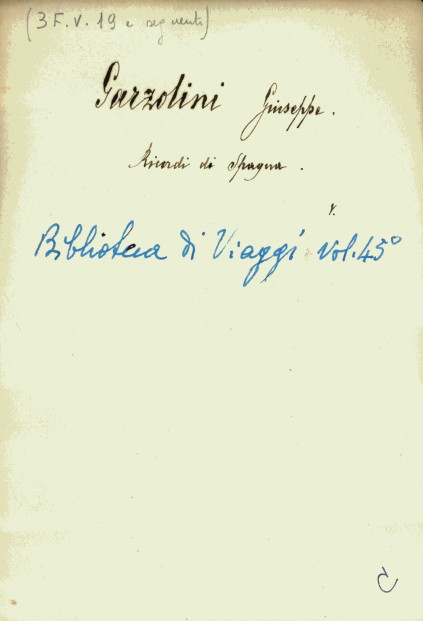 (3 F. V. 19 e seguenti)
Garzolini Giuseppe.
Ricordi di Spagna.
v.
Biblioteca di Viaggi vol. 45°
C